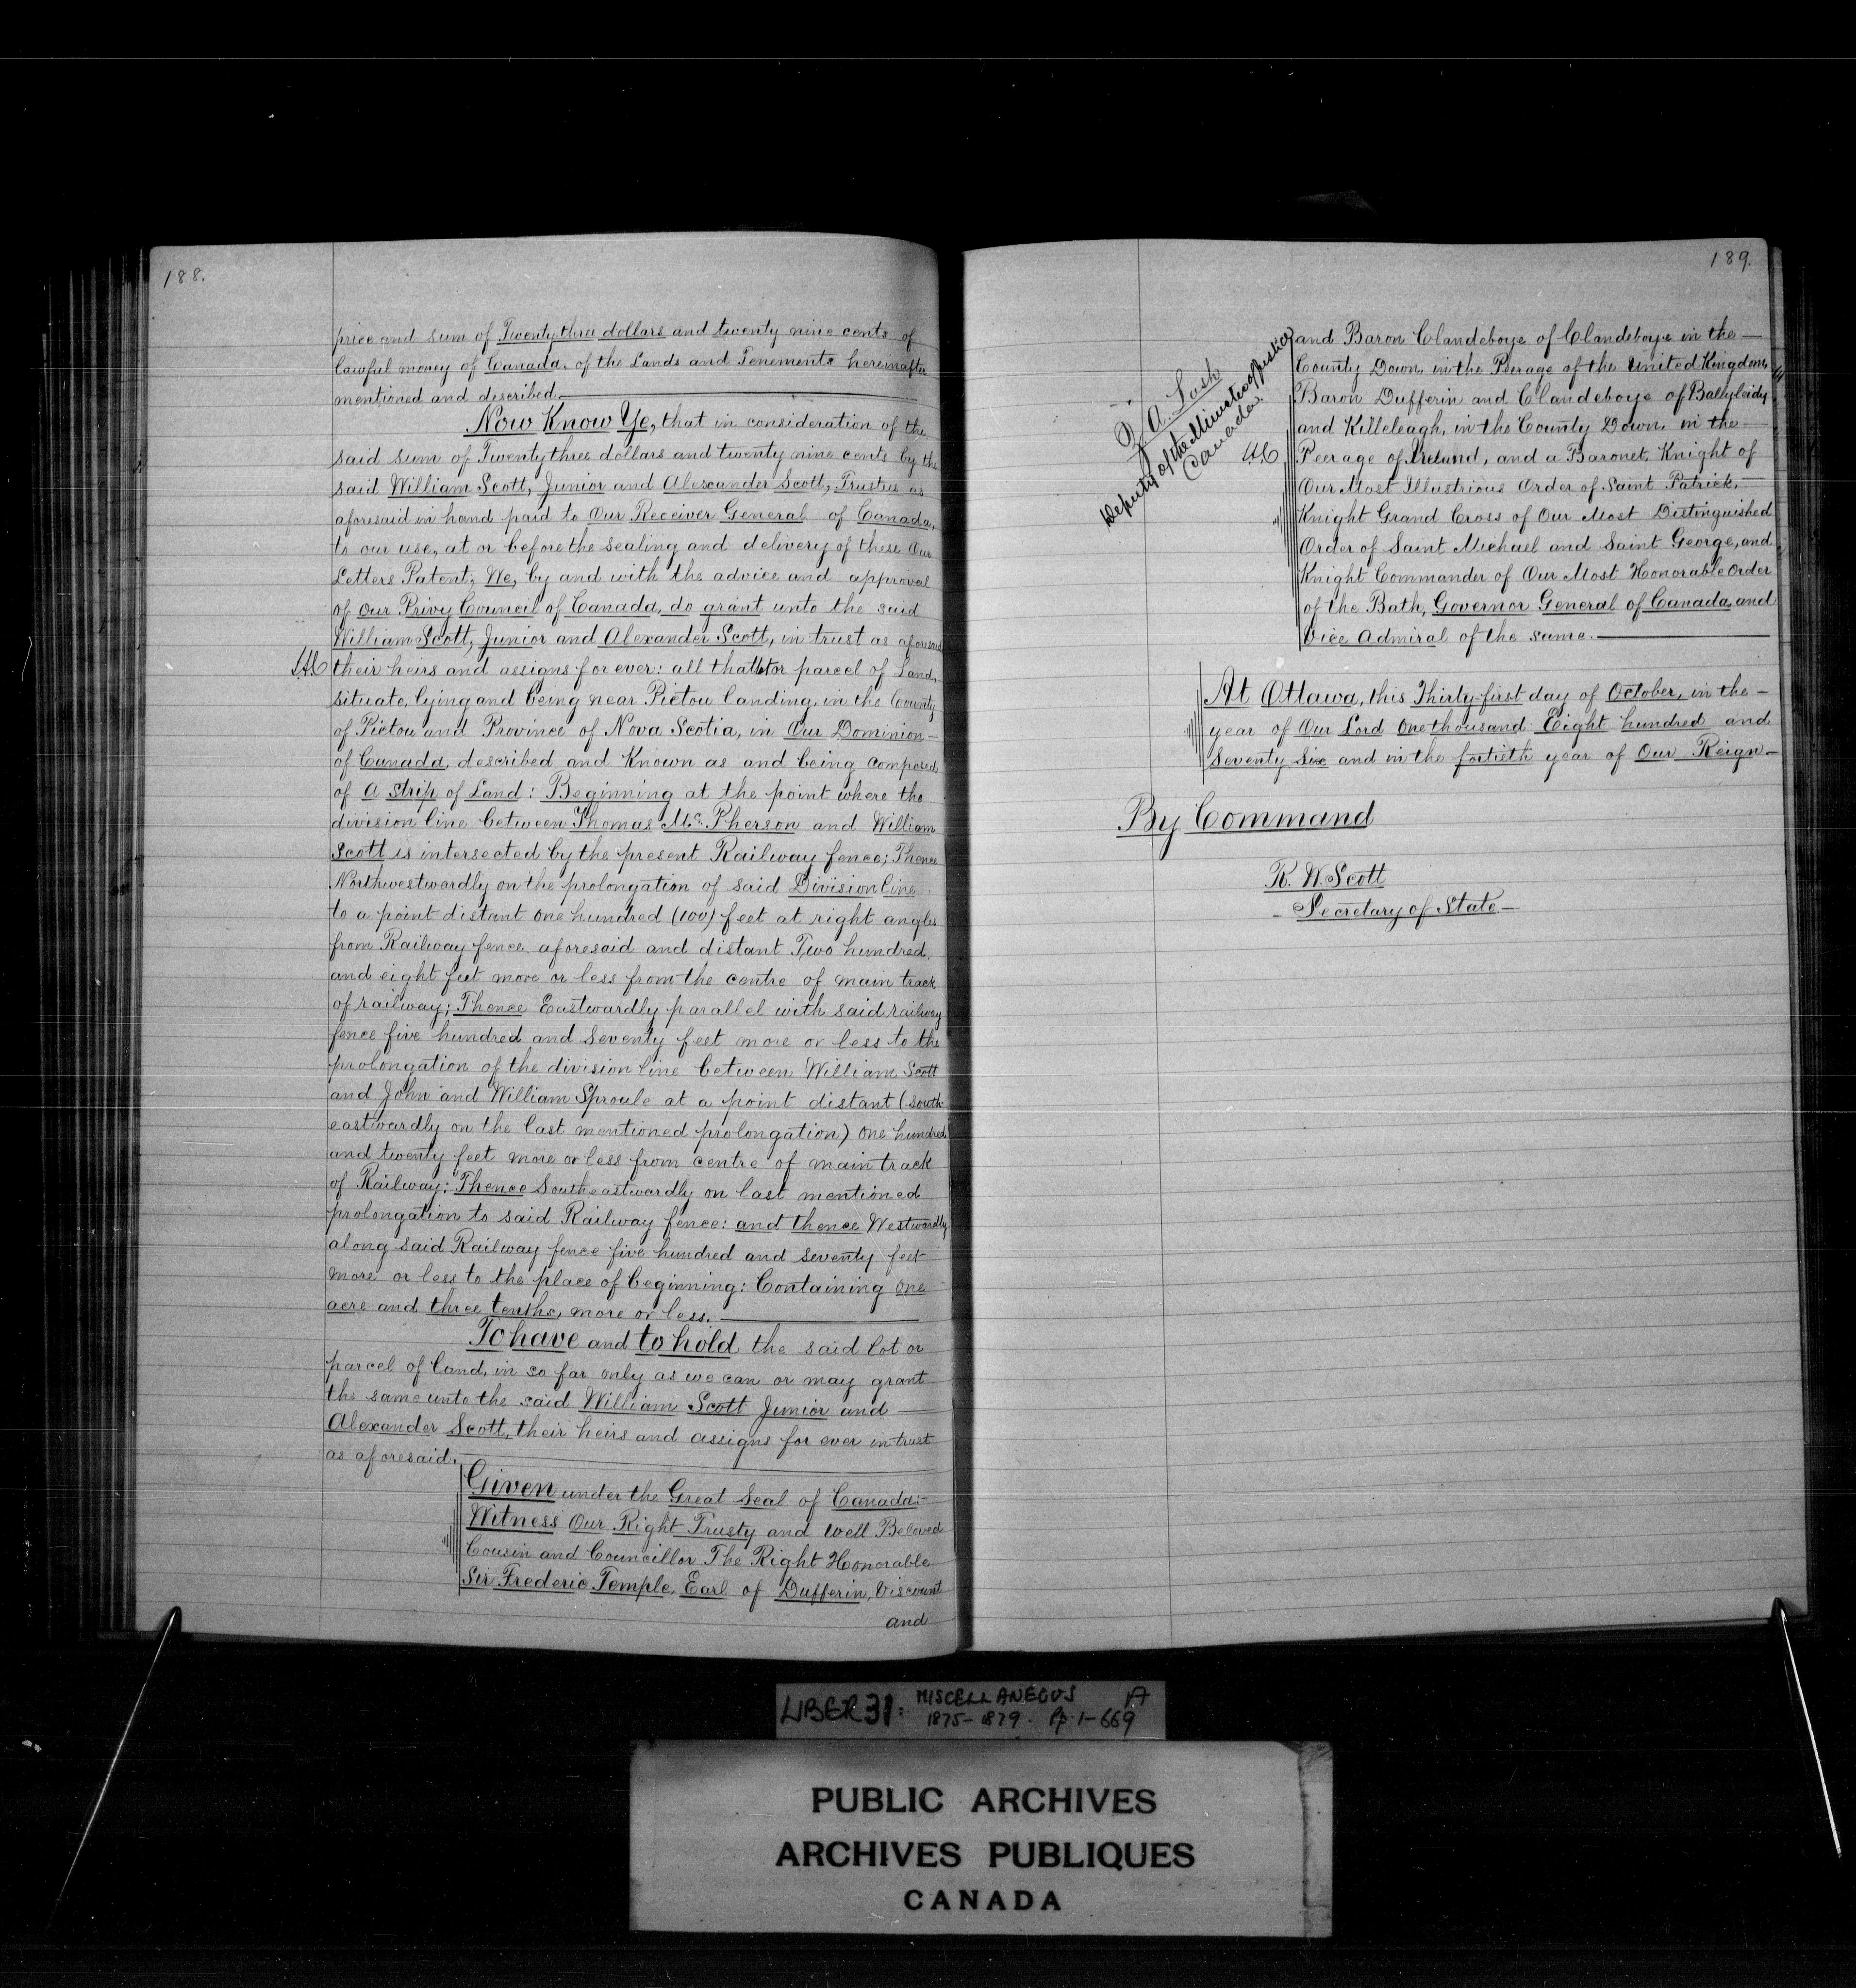 188.
price and sum of Twenty three dollars and twenty nine cents of
lawful money of Canada, of the Lands and Tenements hereinafter
mentioned and described.
Now Know Ye, that in consideration of the
said sum of Twenty three dollars and twenty nine cents by the
said William Scott, Junior and Alexander Scott, Trustees as
aforesaid in hand paid to Our Receiver General of Canada,
to our use, at or before the sealing and delivery of these Our
Letters Patent; We, by and with the advice and approval
of our Privy Council of Canada, do grant unto the said
William Scott, Junior and Alexander Scott, in trust as aforesaid
their heirs and assigns for ever: all that lot or parcel of Land,
situate, lying and being near Pictou landing, in the County
of Pictou and Province of Nova Scotia, in Our Dominion
of Canada, described and Known as and being composed
of a strip of Land: Beginning at the point where the
division line between Thomas McPherson and William
Scott is intersected by the present Railway fence; Thence
Northwestwardly on the prolongation of said Division line
to a point distant one hundred (100) feet at right angles
from Railway fence aforesaid and distant Two hundred
and eight feet more or less from the centre of main track
of railway; Thence Eastwardly parallel with said railway
fence five hundred and seventy feet more or less to the
prolongation of the division line between William Scott
and John and William Sproule at a point distant (south
eastwardly on the last mentioned prolongation) one hundred
and twenty feet more or less from centre of main track
of Railway; Thence Southeastwardly on last mentioned
prolongation to said Railway fence: and thence Westwardly
along said Railway fence five hundred and seventy feet
more or less to the place of beginning: Containing one
acre and three tenths, more or less.
To have and to hold the said lot or
parcel of land, in so far only as we can or may grant
the same unto the said William Scott Junior and
Alexander Scott, their heirs and assigns for ever in trust
as aforesaid.
Given under the Great Seal of Canada:-
Witness Our Right Trusty and Well Beloved
Cousin and Councillor The Right Honorable
Sir Frederic Temple, Earl of Dufferin, Viscount
and
189.
and Baron Clandeboye of Clandeboye in the
County Down, in the Peerage of the United Kingdom,
Baron Dufferin and Clandeboye of Ballyleidy
and Killeleagh, in the County Down, in the
Peerage of Ireland, and a Baronet, Knight of
Our Most Illustrious Order of Saint Patrick,
Knight Grand Cross of Our Most Distinguished
Order of Saint Michael and Saint George, and
Knight Commander of Our Most Honorable Order
of the Bath, Governor General of Canada, and
Vice Admiral of the same.
Z. A. Lash
Deputy of the Minister of Justice
Canada.
At Ottawa, this Thirty-first day of October, in the
year of Our Lord One thousand Eight hundred and
Seventy Six and in the fortieth year of Our Reign
By Command
R. W. Scott
Secretary of State
LIBER 31: MISCELLANEOUS
1875-1879. Pp. 1-669
PUBLIC ARCHIVES
ARCHIVES PUBLIQUES
CANADA